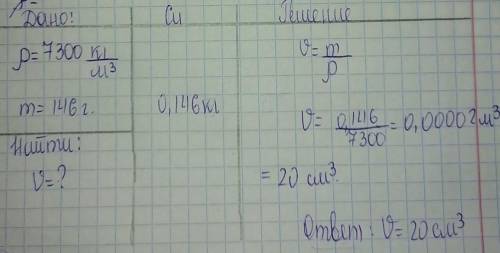 Дано:
ρ=7300 кг/м³
m=146г.
Найти:
V=?
Си
0,146кг
Решение
V= m/ρ
V= 0,146/7300 = 0,00002м³
= 20 см³.
Ответ: V=20см³